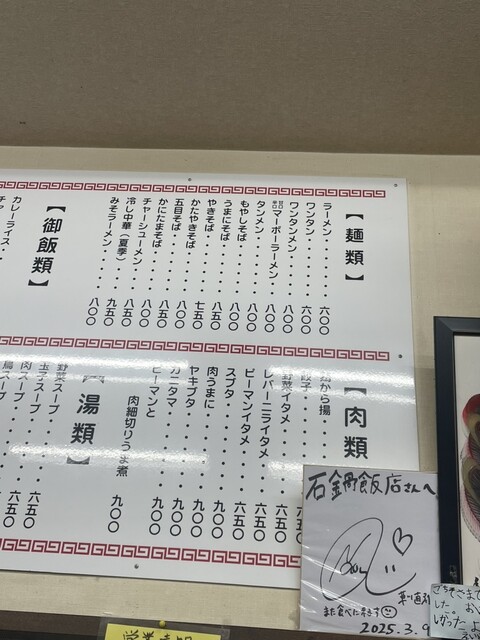 【麺類】
ラーメン・・・・・・・六〇〇
ワンタン・・・・・・・六〇〇
ワンタンメン・・・・・八〇〇
甘口辛口マーボーラーメン・・・八〇〇
タンメン・・・・・・・八〇〇
もやしそば・・・・・・八〇〇
うまにそば・・・・・・八五〇
やきそば・・・・・・・七五〇
かたやきそば・・・・・八五〇
五目そば・・・・・・・八五〇
かにたまそば・・・・・八〇〇
チャーシューメン・・・八五〇
冷し中華（夏季）・・・九五〇
みそラーメン・・・・・八〇〇
【御飯類】
カレーライス・
【肉類】
から揚・
餃子・
野菜イタメ・・・六五〇
レバーニライタメ・・六五〇
ピーマンイタメ・・・六五〇
スブタ・・・・・・九〇〇
肉うまに・・・・・九〇〇
ヤキブタ・・・・・九〇〇
カニタマ・・・・・九〇〇
ピーマンと
肉細切りうま煮 九〇〇
【湯類】
野菜スープ・・・六五〇
玉子スープ・・・六五〇
肉スープ・・・・六五〇
スープ
石金剛飯店さんへ
また食べに来ます
2025.3.9
ごちそさまで
した。